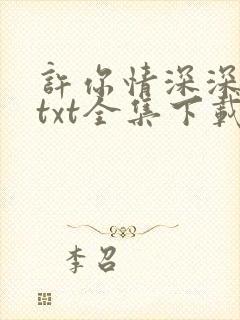 許你情深深
txt全集下載
李召